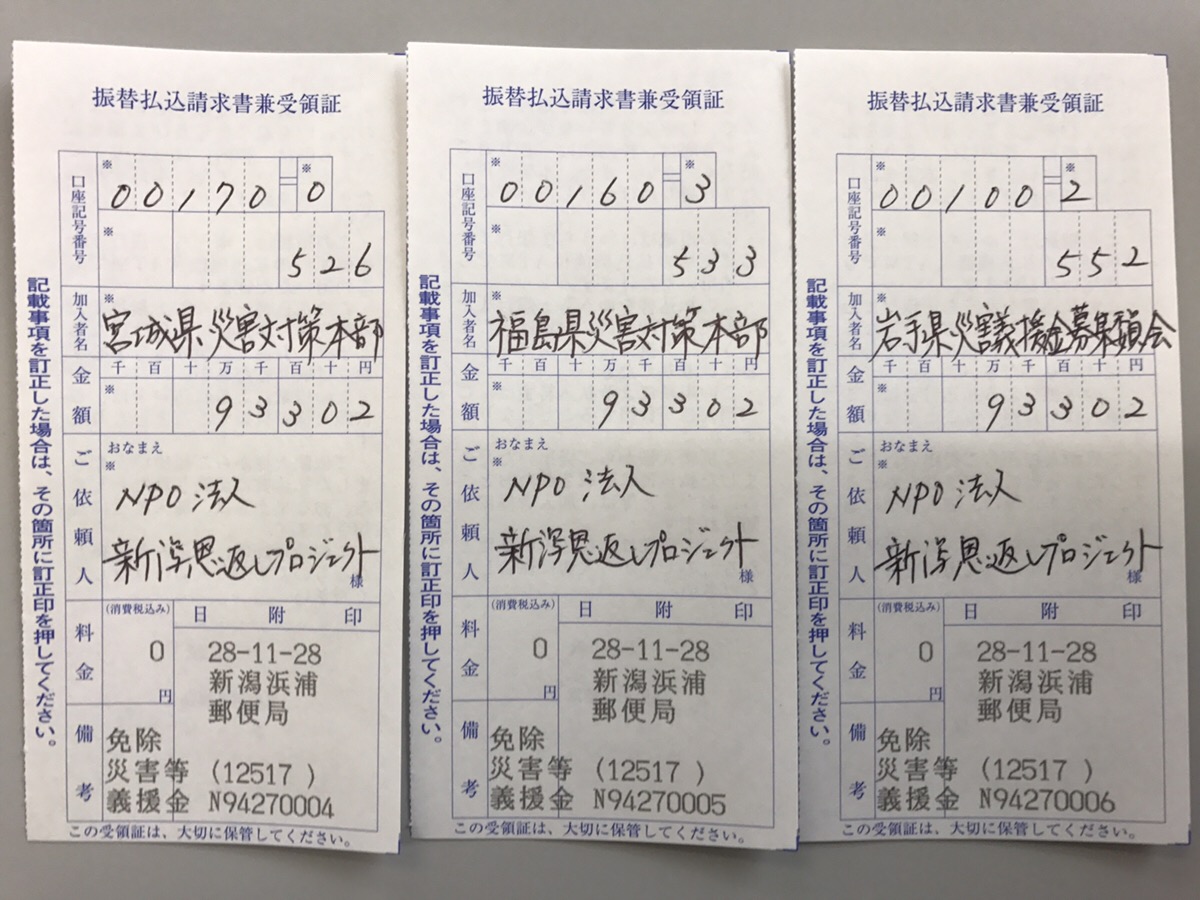 振替払込請求書兼受領証
口座記号番号
※ ※
00170=0
※
526
加入者名
※
宮城県災害対策本部
金額
千百十万千百十円
※
93302
ご依頼人
おなまえ
※
NPO法人
新潟恩返しプロジェクト
様
料金
(消費税込み)
0
円
日附印
28-11-28
新潟浜浦
郵便局
備考
免除
災害等 (12517 )
義援金 N94270004
この受領証は、大切に保管してください。
記載事項を訂正した場合は、その箇所に訂正印を押してください。
振替払込請求書兼受領証
口座記号番号
※ ※
00160=3
※
533
加入者名
※
福島県災害対策本部
金額
千百十万千百十円
※
93302
ご依頼人
おなまえ
※
NPO法人
新潟恩返しプロジェクト
様
料金
(消費税込み)
0
円
日附印
28-11-28
新潟浜浦
郵便局
備考
免除
災害等 (12517 )
義援金 N94270005
この受領証は、大切に保管してください。
記載事項を訂正した場合は、その箇所に訂正印を押してください。
振替払込請求書兼受領証
口座記号番号
※ ※
00100=2
※
552
加入者名
※
岩手県災害義援金募集委員会
金額
千百十万千百十円
※
93302
ご依頼人
おなまえ
※
NPO法人
新潟恩返しプロジェクト
様
料金
(消費税込み)
0
円
日附印
28-11-28
新潟浜浦
郵便局
備考
免除
災害等 (12517 )
義援金 N94270006
この受領証は、大切に保管してください。
記載事項を訂正した場合は、その箇所に訂正印を押してください。